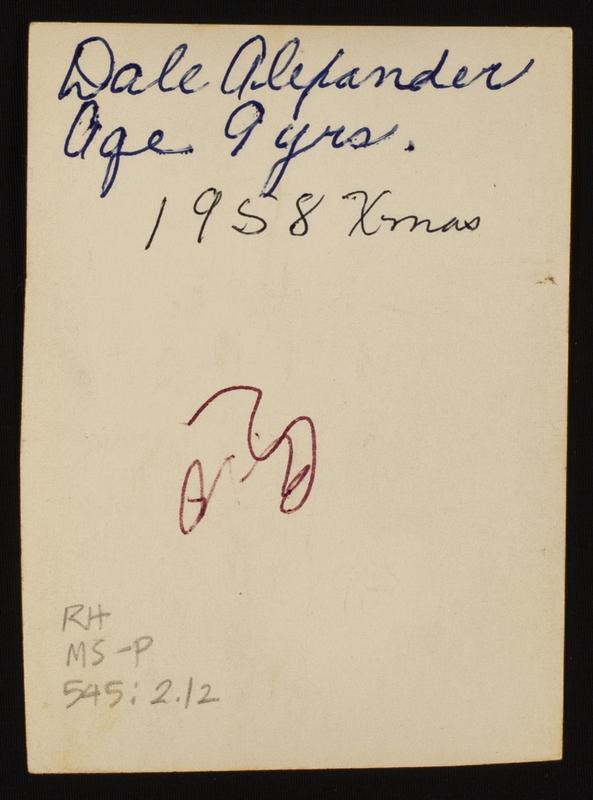 Dale Alexander
Age 9 yrs.
1958 Xmas
RH
MS-P
545:2.12